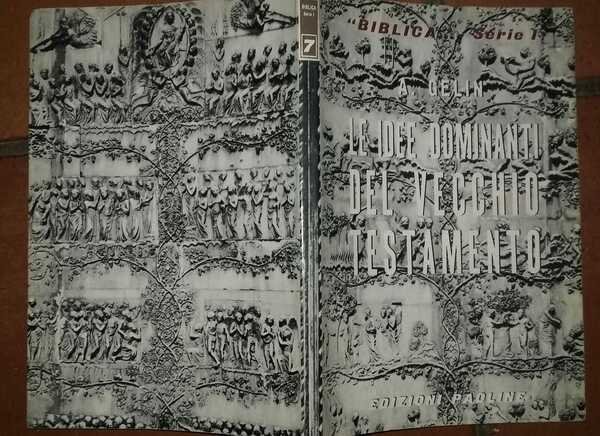 BIBLICA
Serie I
7
"BIBLICA" Serie I
A. GELIN
LE IDEE DOMINANTI
DEL VECCHIO
TESTAMENTO
EDIZIONI PAOLINE